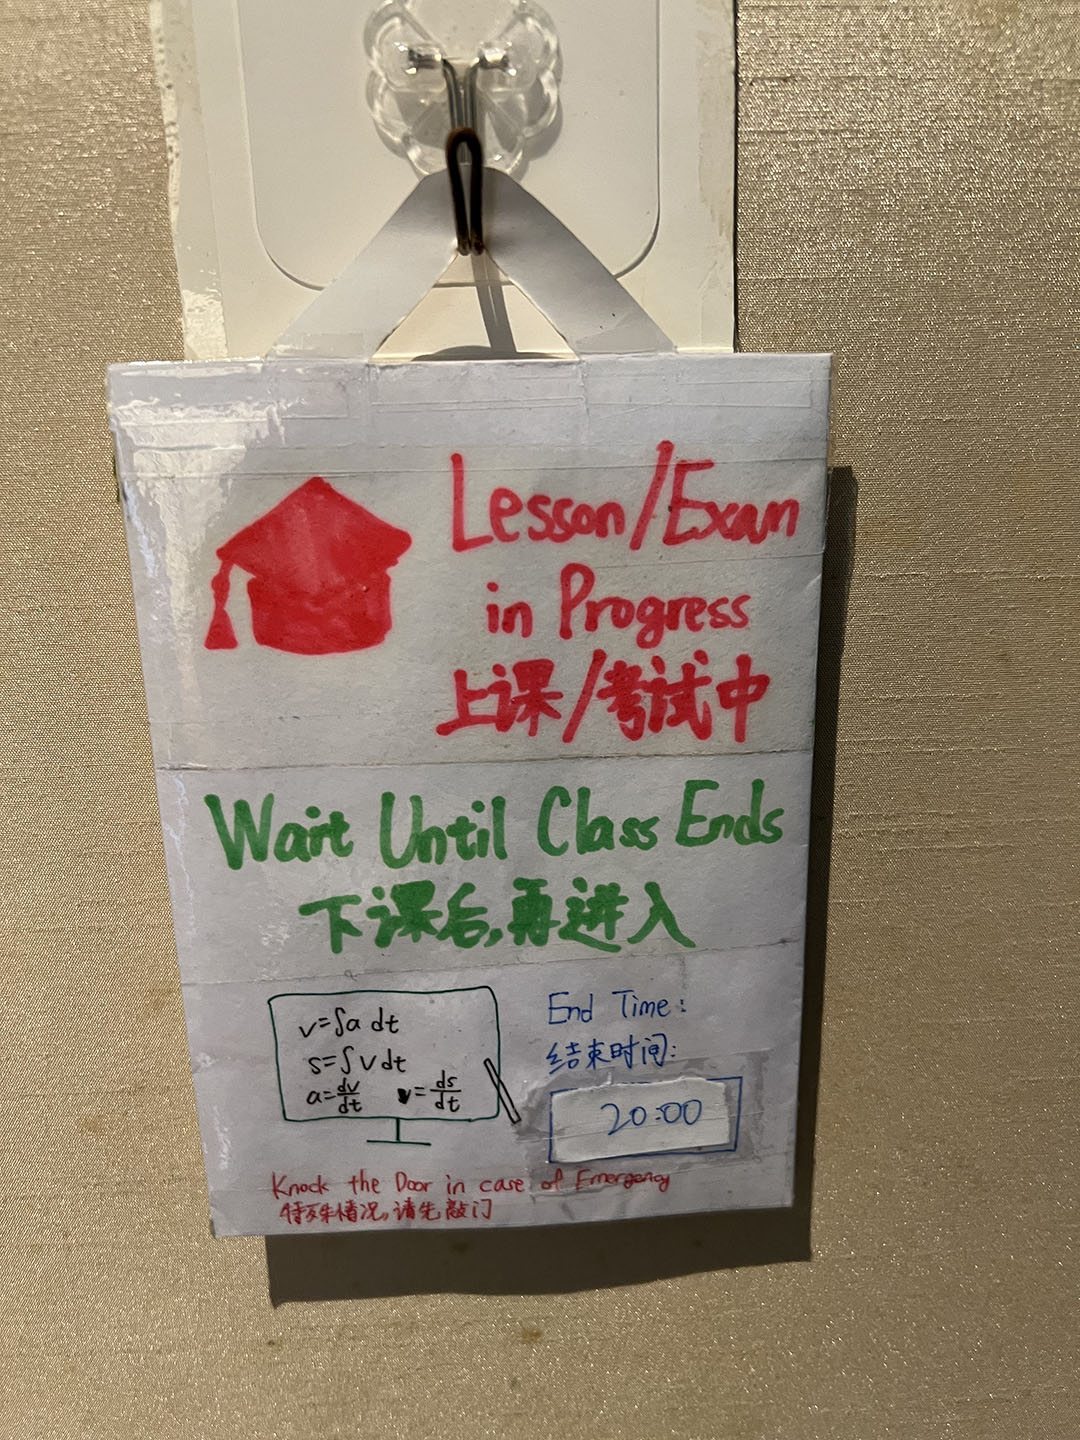 Lesson/Exam
in Progress
上课/考试中
Wait Until Class Ends
下课后,再进入
v=∫a dt
s=∫v dt
a=dv/dt v=ds/dt
End Time:
结束时间:
20:00
Knock the Door in case of Emergency
特殊情况,请先敲门